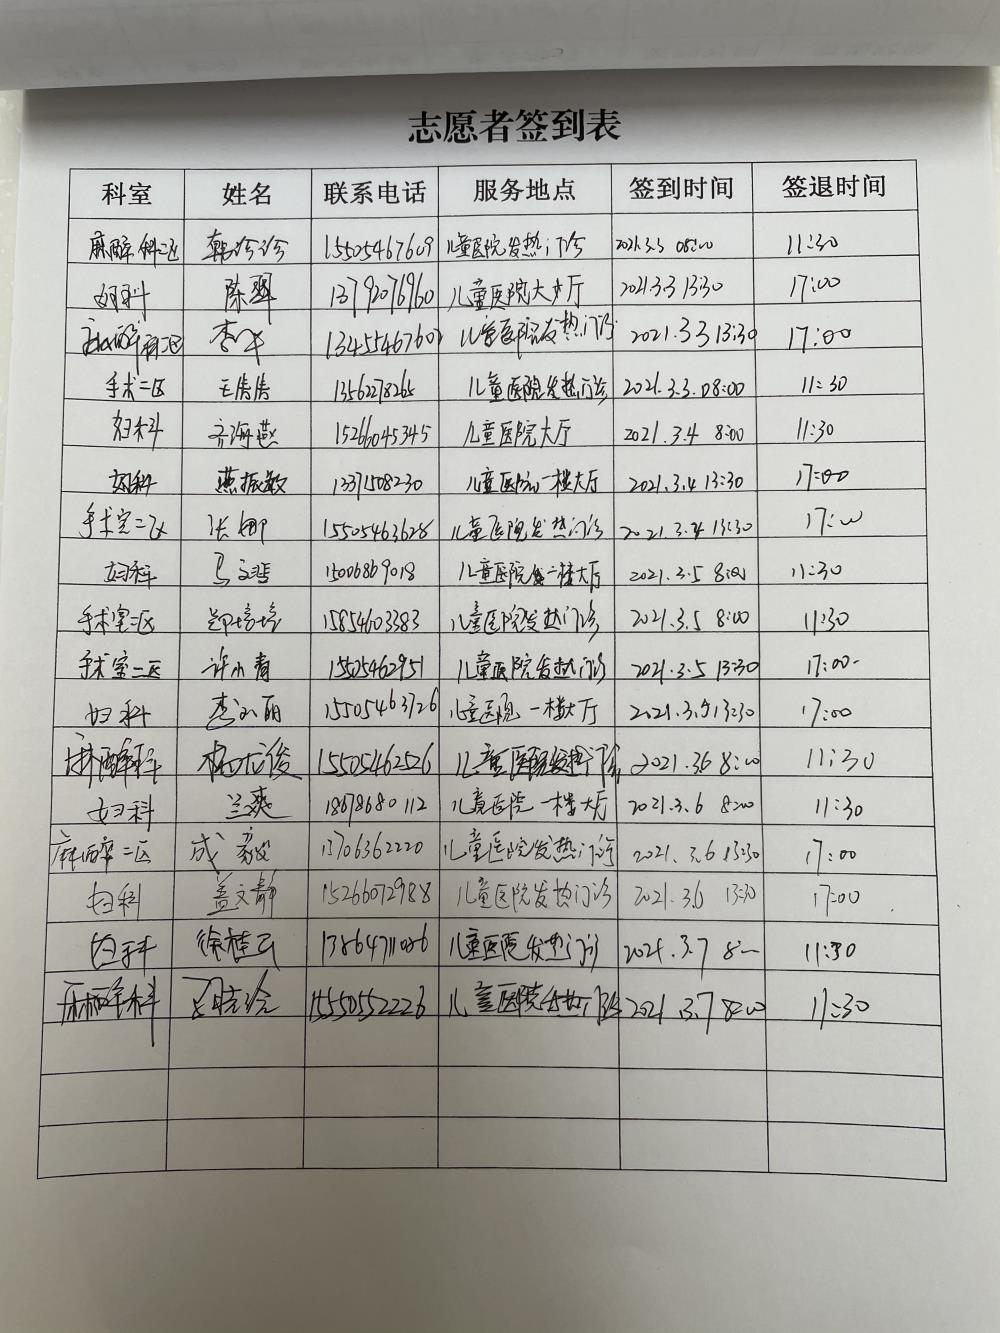 志愿者签到表
科室 姓名 联系电话 服务地点 签到时间 签退时间
麻醉科二区 韩珍珍 15505467609 儿童医院发热门诊 2021.3.3 08:00 11:30
妇科 陈 13792076960 儿童医院大厅 2021.3.3 13:30 17:00
麻醉科二区 李 13455467602 儿童医院发热门诊 2021.3.3 13:30 17:00
手术二区 王倩倩 13562278265 儿童医院发热门诊 2021.3.3.08:00 11:30
妇科 齐海燕 15266045345 儿童医院大厅 2021.3.4 8:00 11:30
妇科 燕振敏 1331508230 儿童医院一楼大厅 2021.3.4 13:30 17:00
手术室二区 张娜 15505463628 儿童医院发热门诊 2021.3.4 13:30 17:00
妇科 马文 15006869018 儿童医院一楼大厅 2021.3.5 8:00 11:30
手术室二区 郑培培 15854603383 儿童医院发热门诊 2021.3.5 8:00 11:30
手术室二区 许小青 15505462951 儿童医院发热门诊 2021.3.5 13:30 17:00
妇科 李小丽 15505463726 儿童医院一楼大厅 2021.3.5 13:30 17:00
麻醉科 杨右俊 15505462526 儿童医院发热门诊 2021.3.6 8:00 11:30
妇科 兰爽 18678680112 儿童医院一楼大厅 2021.3.6 8:00 11:30
麻醉二区 成毅 13706362220 儿童医院发热门诊 2021.3.6 13:30 17:00
妇科 盖文静 15266072988 儿童医院发热门诊 2021.3.6 13:30 17:00
妇科 徐桂云 13864711086 儿童医院发热门诊 2021.3.7 8:00 11:30
麻醉科 15550552226 儿童医院发热门诊 2021.3.7 8:00 11:30